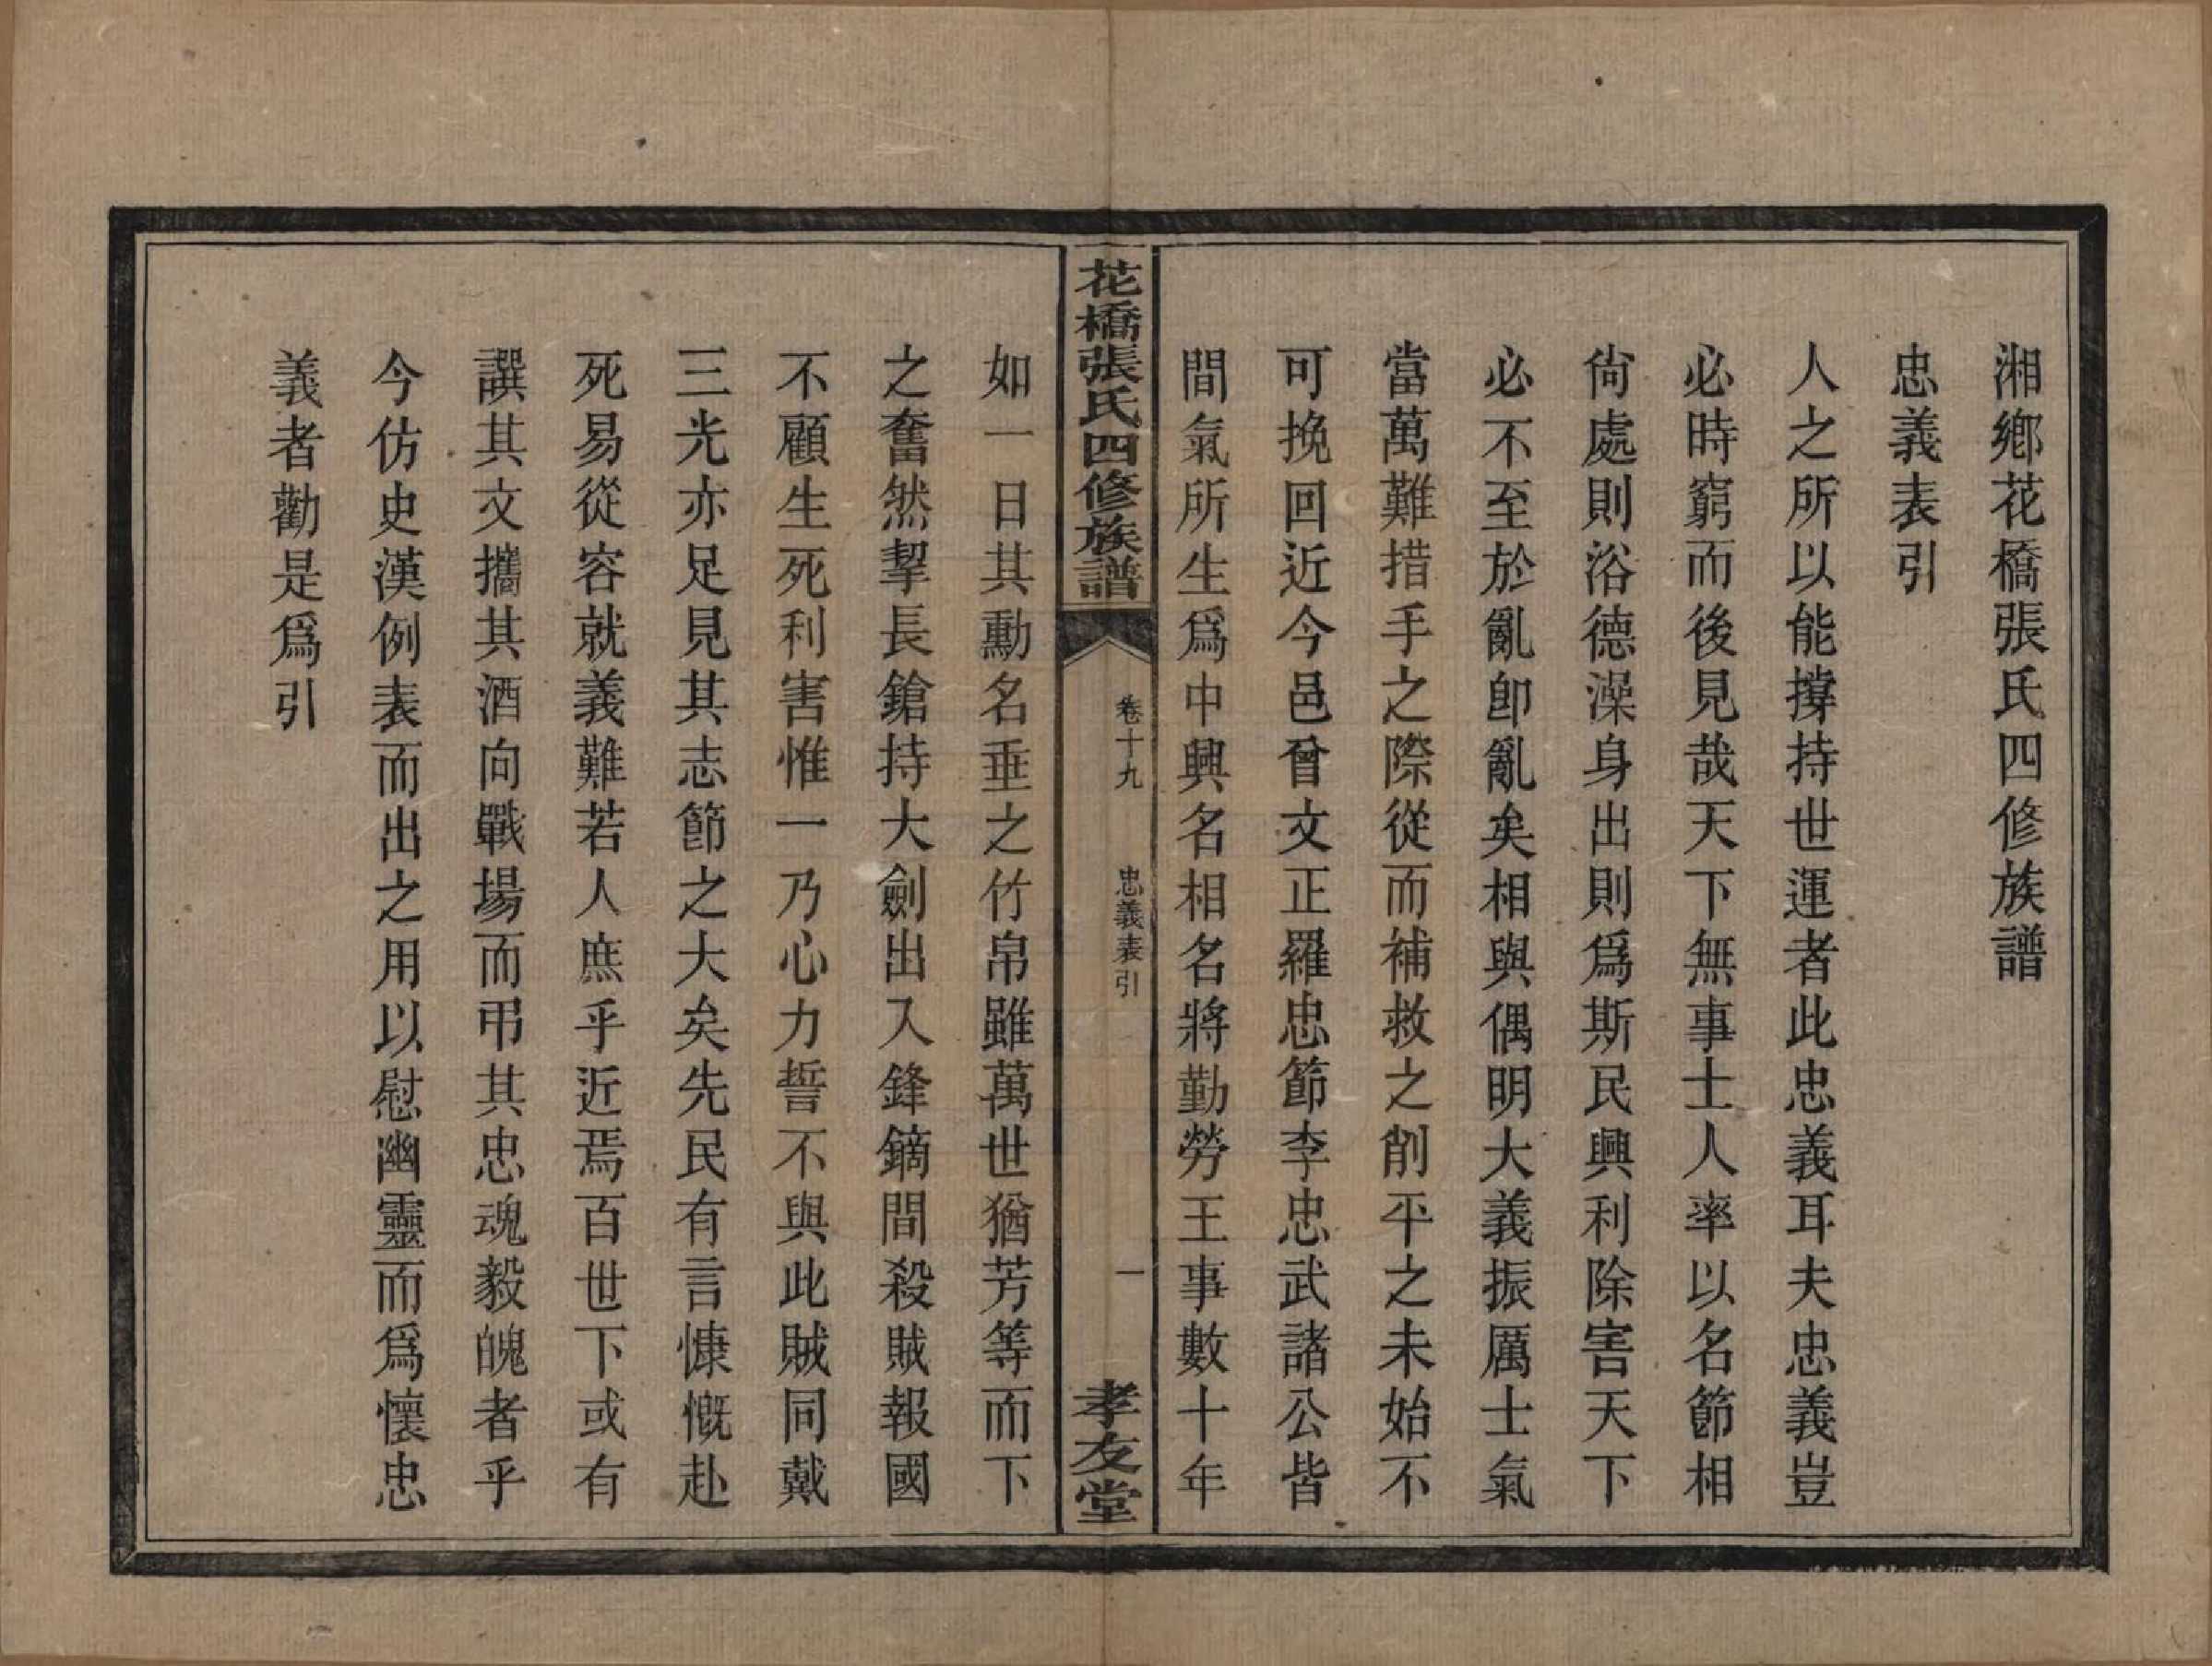 湘鄉花橋張氏四修族譜
忠義表引
人之所以能撐持世運者此忠義耳夫忠義豈
必時窮而後見哉天下無事士人率以名節相
尙處則浴德澡身出則爲斯民興利除害天下
必不至於亂卽亂矣相與偶明大義振厲士氣
當萬難措手之際從而補救之削平之未始不
可挽回近今邑曾文正羅忠節李忠武諸公皆
間氣所生爲中興名相名將勤勞王事數十年
花橋張氏四修族譜
卷十九
忠義表引
一
孝友堂
如一日其勳名垂之竹帛雖萬世猶芳等而下
之奮然挈長鎗持大劍出入鋒鏑間殺賊報國
不顧生死利害惟一乃心力誓不與此賊同戴
三光亦足見其志節之大矣先民有言慷慨赴
死易從容就義難若人庶乎近焉百世下或有
譔其文攜其酒向戰場而弔其忠魂毅魄者乎
今仿史漢例表而出之用以慰幽靈而爲懷忠
義者勸是爲引